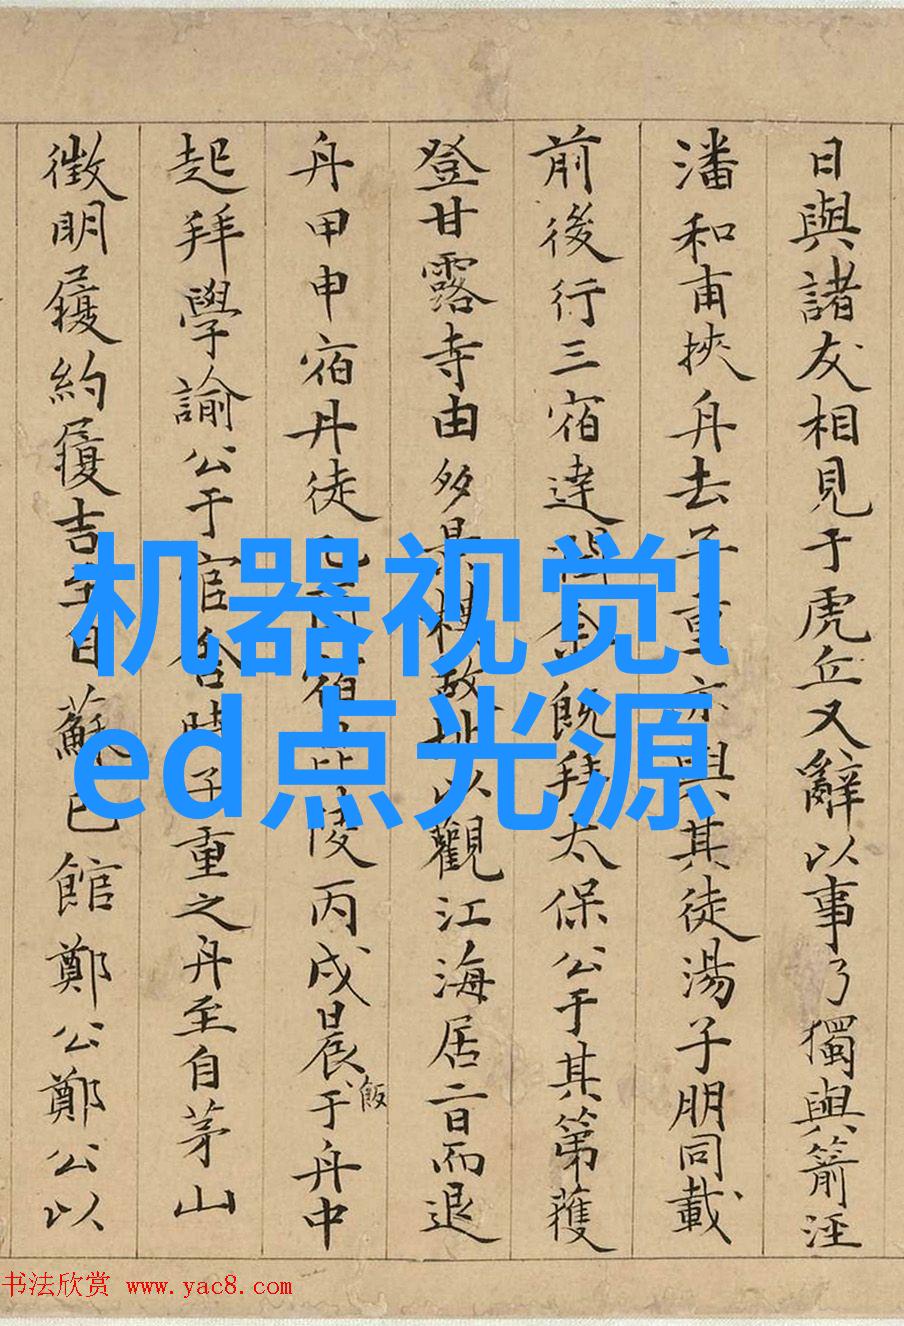 日與諸友相見于虎丘又辭以事乃獨與箭涇
潘和甫挾舟去子重亦與其徒湯子朋同載
前後行三宿達 既拜太保公于其第獲
登甘露寺由多景樓 以觀江海居二日而退
舟甲申宿丹徒 宿 陵丙戌晨飯于舟中
起拜學諭公于官舍時子重之舟至自茅山
徵明履約履吉至自蘇已館鄭公鄭公以
机器视觉l
ed点光源
书法欣赏 www.yac8.com